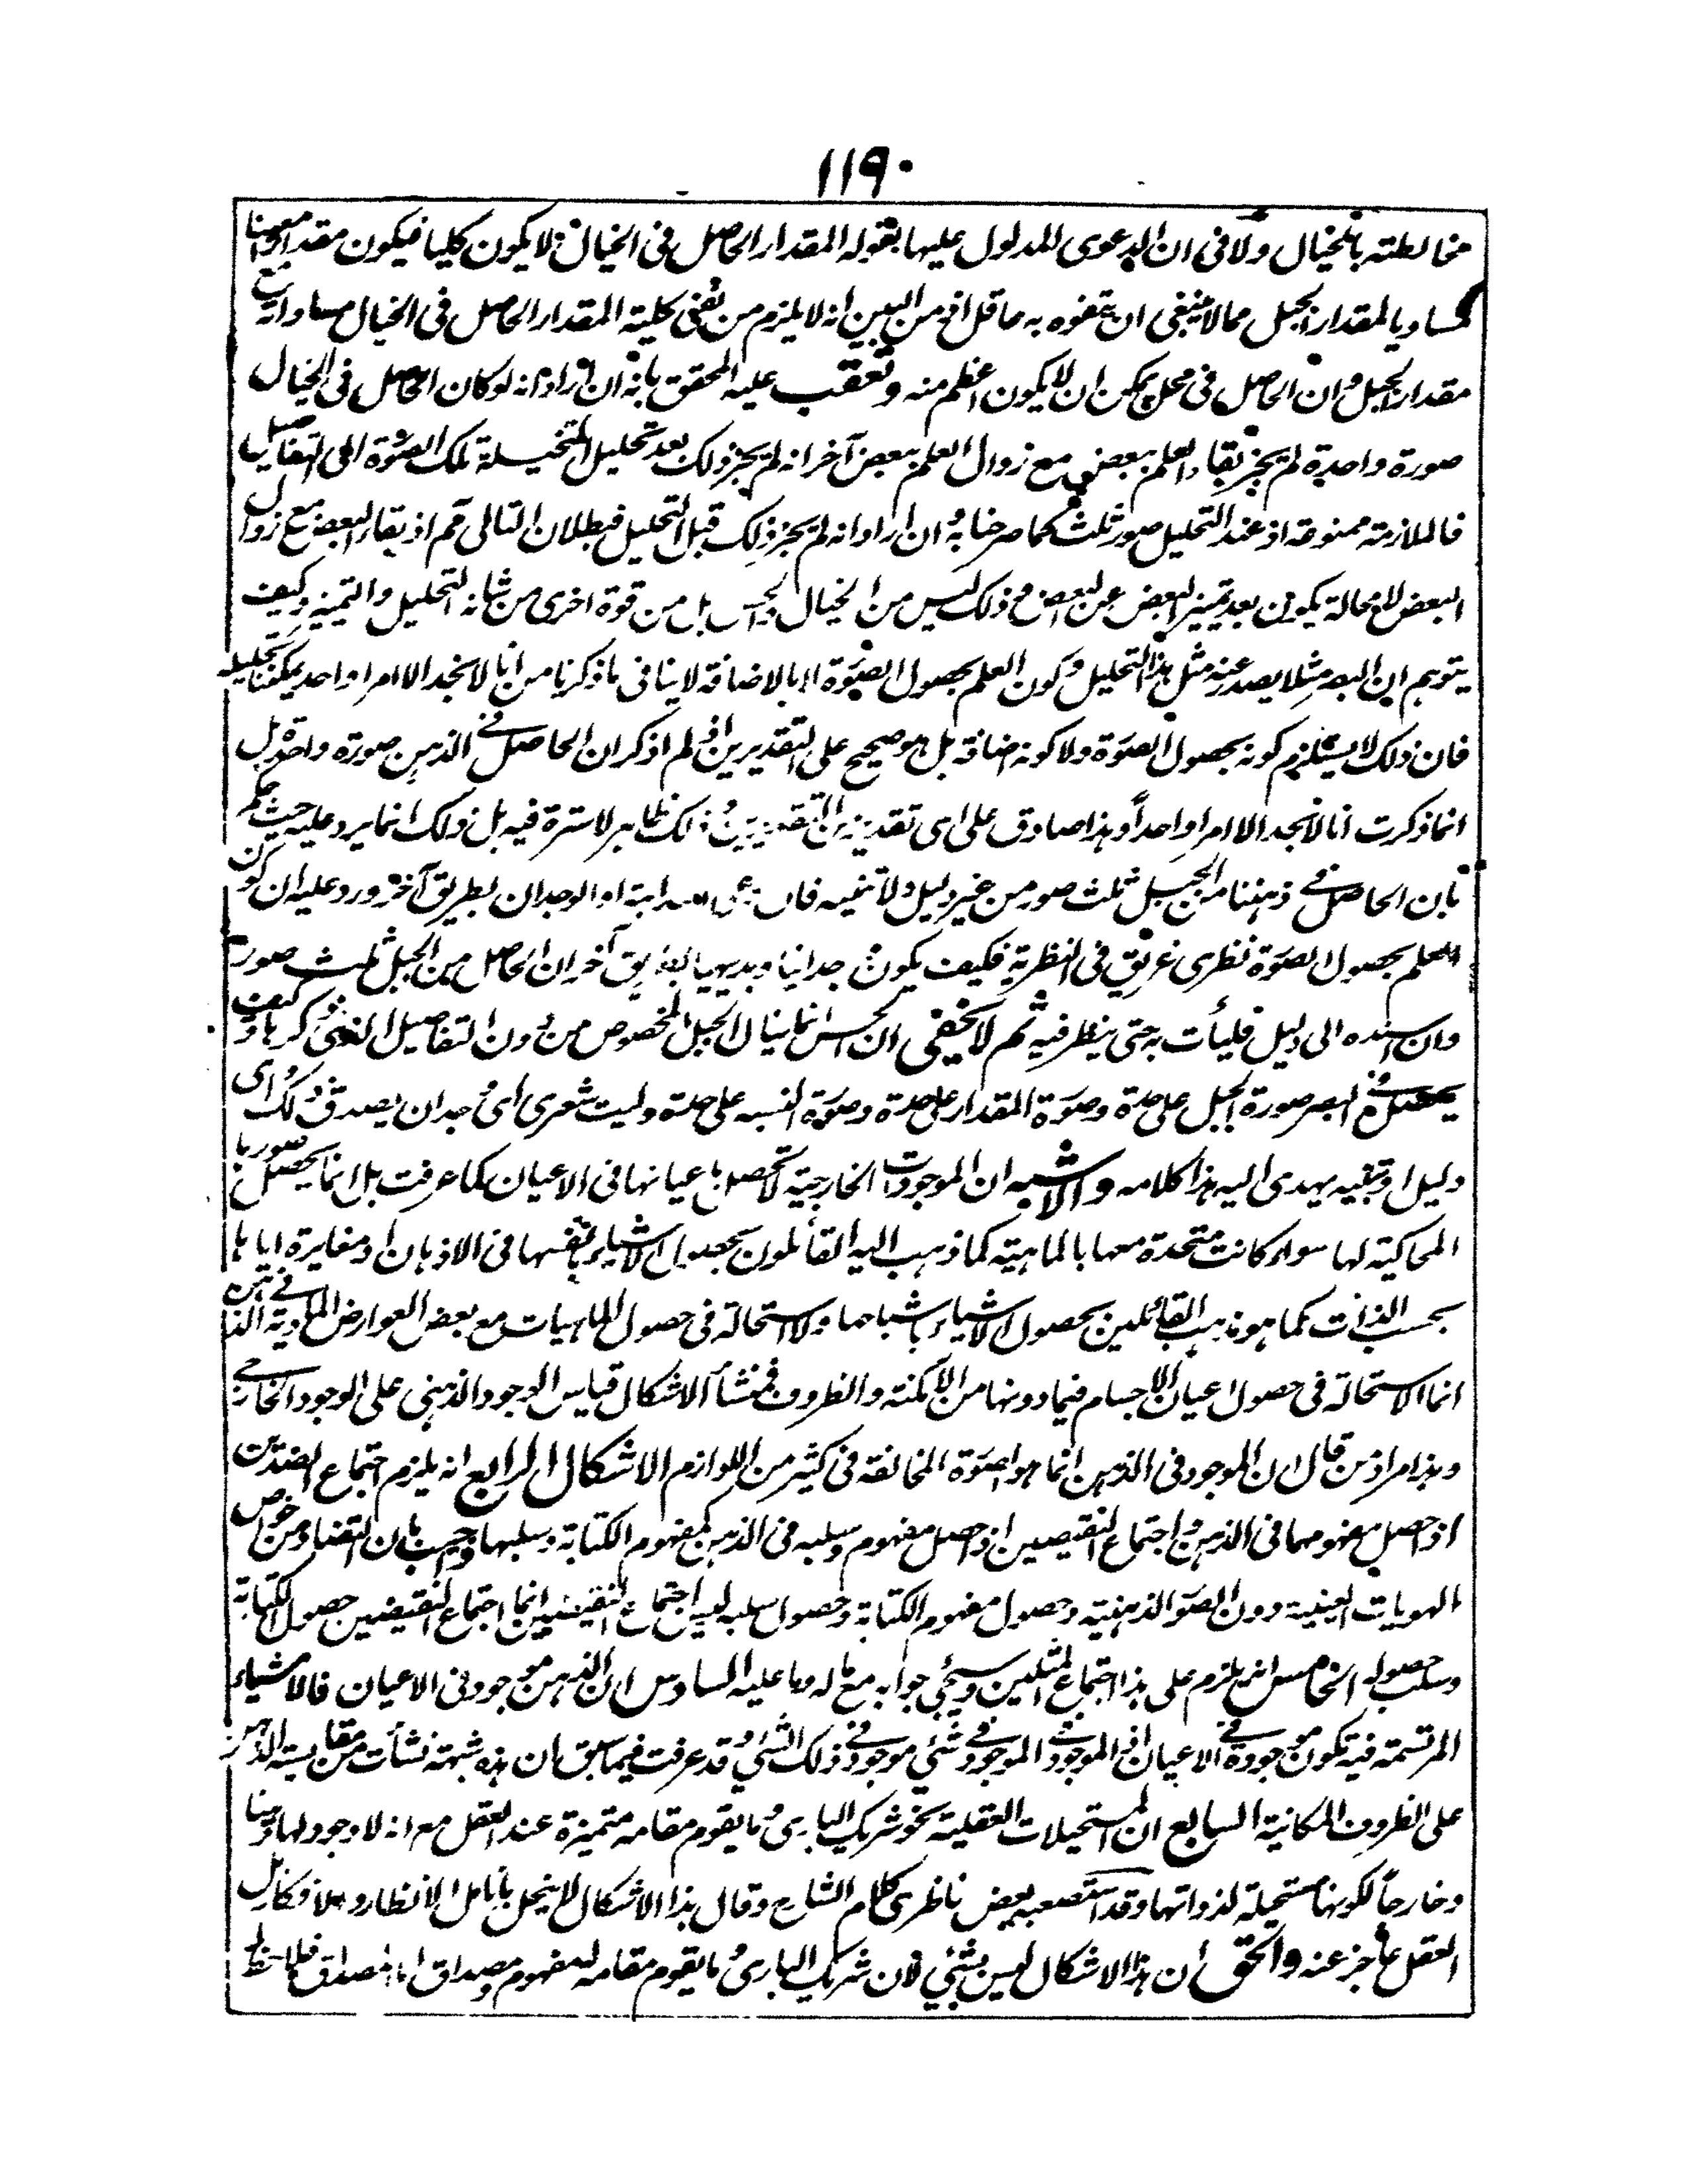 ١١٩٠
مخالطته بالخيال ولا فى ان الدعوى المدلول عليها بقوله المقدار الحاصل فى الخيال لا يكون كليا فيكون مقدارا معينا
مساويا لمقدار الجبل مما لا ينبغى ان يتفوه به عاقل اذ من البين انه لا يلزم من نفى كلية المقدار الحاصل فى الخيال مساواته مع
مقدار الجبل وان الحاصل فى محل يمكن ان لا يكون اعظم منه وتعقب عليه المحقق بانه ان اراد انه لو كان الحاصل فى الخيال
صورة واحدة لم يجز بقاء العلم ببعض مع زوال العلم ببعض آخر انه لم يجز ذلك بعد تحليل المتخيلة تلك الصورة الى التفاصيل
فالملازمة ممنوعة اذ عند التحليل صور ثلث كما صرحنا به وان اراد انه لم يجز ذلك قبل التحليل فبطلان التالى قم اذ بقاء البعض مع زوال
البعض لا محالة يكون بعد تميز البعض عن البعض وذلك ليس من الخيال والحس بل من قوة اخرى من شانه التحليل والتميز وكيف
يتوهم ان البصر مثلا يصدر عنه مثل هذا التحليل وكون العلم بحصول الصورة او بالاضافة لا ينافى ما ذكرنا من انا لا نجد الا امرا واحدا يمكننا تحليله
فان ذلك لا يستلزم كونه بحصول الصورة ولا كونه اضافة بل هو صحيح على التقديرين اذ لم اذكر ان الحاصل فى الذهن صورة واحدة بل
انما ذكرت انا لا نجد الا امرا واحداً وهذا صادق على اى تقدير من التقديرين وذلك ظاهر لا سترة فيه بل ذلك انما يرد عليه حيث حكم
بان الحاصل فى ذهننا من الجبل ثلث صور من غير دليل ولا تنبيه فان ادعى البداهة او الوجدان بطريق آخر ورد عليه ان كون
العلم بحصول الصورة نظرى غريق فى النظرية فكيف يكون وجدانيا وبديهيا بطريق آخر ان الحاصل من الجبل ثلث صور
وان اسنده الى دليل فليأت به حتى ينظر فيه ثم لا يخفى ان الحس انما ينال الجبل المخصوص من دون التفاصيل التى ذكرها وكيف
يحصل فى البصر صورة الجبل على حدة وصورة المقدار على حدة وصورة النسبه على حدة وليت شعرى اى وجدان يصدق ذلك واى
دليل او تنبيه يهدى اليه هذا كلامه والاشبه ان الموجودات الخارجية لا تحصل باعيانها فى الاعيان كما عرفت بل انما يحصل صورها
المحاكية لها سواء كانت متحدة معها بالماهية كما ذهب اليه القائلون بحصول الاشياء بانفسها فى الاذهان او مغايرة اياها
بحسب الذات كما هو مذهب القائلين بحصول الاشياء باشباحها ولا استحالة فى حصول الماهيات مع بعض العوارض المادية فى الذهن
انما الاستحالة فى حصول اعيان الاجسام فيما دونها من الامكنة والظروف فمنشأ الاشكال قياس الوجود الذهنى على الوجود الخارجى
وهذا مراد من قال ان الموجود فى الذهن انما هو الصورة المخالفة فى كثير من اللوازم الاشكال الرابع انه يلزم اجتماع الضدين
اذ حصل مفهومهما فى الذهن واجتماع النقيضين اذ حصل مفهوم وسلبه فى الذهن كمفهوم الكتابة وسلبها واجيب بان التضاد من خواص
الهويات العينية دون الصور الذهنية وحصول مفهوم الكتابة وحصول سلبه ليس اجتماع النقيضين انما اجتماع النقيضين حصول الكتابة
وسلب حصوله الخامس انه يلزم على هذا اجتماع المثلين وسيجئ جوابه مع ما له وما عليه السادس ان الذهن موجود فى الاعيان فالاشياء
المرتسمة فيه تكون موجودة فى الاعيان اذ الموجود فى الموجود فى شئ موجود فى ذلك الشئ وقد عرفت فيما سبق ان هذه شبهة نشأت من مقايسة الذهن
على الظروف المكانية السابع ان المستحيلات العقلية نحو شريك البارى وما يقوم مقامه متميزة عند العقل مع انه لا وجود لها ذهنا
وخارجاً لكونها مستحيلة لذواتها وقد استصعبه بعض ناظرى كلام الشارح وقال هذا الاشكال لا ينحل بانامل الانظار والافكار بل
العقل عاجز عنه والحق ان هذا الاشكال ليس بشئ فان شريك البارى وما يقوم مقامه له مفهوم ومصداق اما المصداق فلا حظ